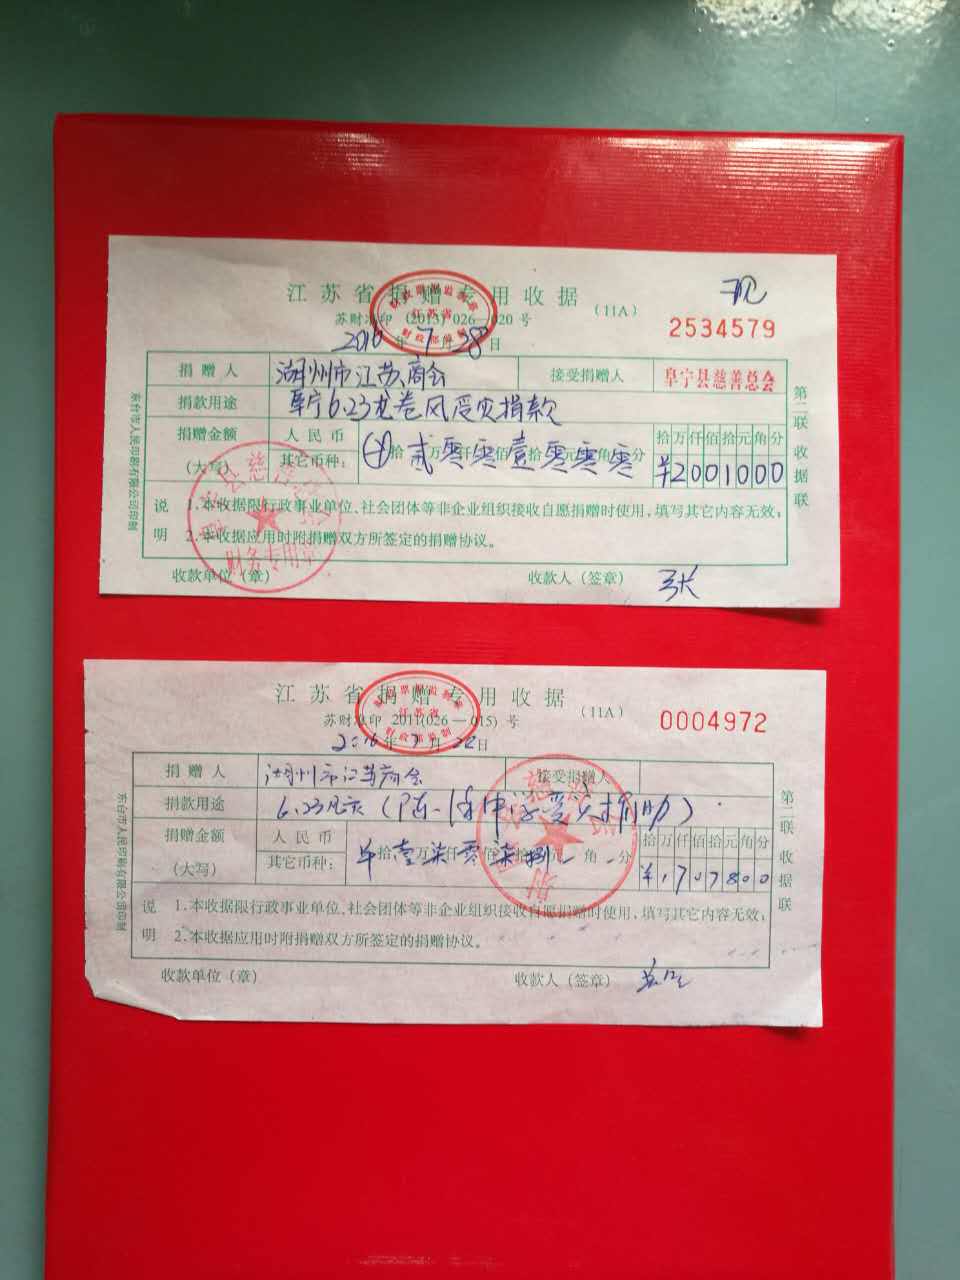 江苏省捐赠专用收据
(11A)
现
苏财准印 (2013) 026—020 号
2534579
2016年7月28日
捐赠人 湖州市江苏商会 接受捐赠人 阜宁县慈善总会
捐款用途 阜宁6.23龙卷风受灾捐款
捐赠金额 人民币 拾万仟佰拾元角分
(大写) 其它币种: 贰零零壹零零零 ¥2001000
说明 1.本收据限行政事业单位、社会团体等非企业组织接收自愿捐赠时使用,填写其它内容无效;
2.本收据应用时附捐赠双方所签定的捐赠协议。
收款单位(章) 收款人(签章) 张
财务专用章
第二联 收据联
东台市人民印刷有限公司印制
江苏省捐赠专用收据
(11A)
苏财准印 2011(026—015) 号
0004972
2016年7月22日
捐赠人 湖州市江苏商会 接受捐赠人
捐款用途 6.23风灾
捐赠金额 人民币 拾万仟佰拾元角分
(大写) 其它币种: 壹柒零柒捌 ¥1707800
说明 1.本收据限行政事业单位、社会团体等非企业组织接收自愿捐赠时使用,填写其它内容无效;
2.本收据应用时附捐赠双方所签定的捐赠协议。
收款单位(章) 收款人(签章)
第二联 收据联
东台市人民印刷有限公司印制